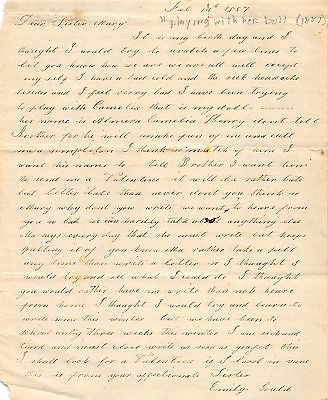 Feb 14th 1857
"playing with her doll (1857)
Dear Sister Mary
It is my birth day and I
thought I would try to scratch a few lines to
let you know how we are we are all well except
my self I have a bad cold and the sick headache
besides and I feel very bad I have been trying
to play with Camelia that is my doll
her name is Almira Camelia Thenry dont tell
Brother for he will make fun of me and call
me a simpleton I think so much of him I
want his name to tell Brother I want him
to send me a Valentine it will be rather late
but better late than never dont you think so
Mary why dont you write we want to hear from
you so bad we can hardly talk about anything else
Ma says every day that she must write but keeps
putting it of you know Ma rather take a pill
any time than write a letter so I thought I
would try and see what I could do I thought
you would rather have me write than not hear
from home I thought I would try and learn to
write some this winter but we have been to
school only three weeks this winter I am sick and
tired and must close write as soon as you get this
I shall look for a Valentine if I look in vane
this is from your affectionate Sister
Emily Gould